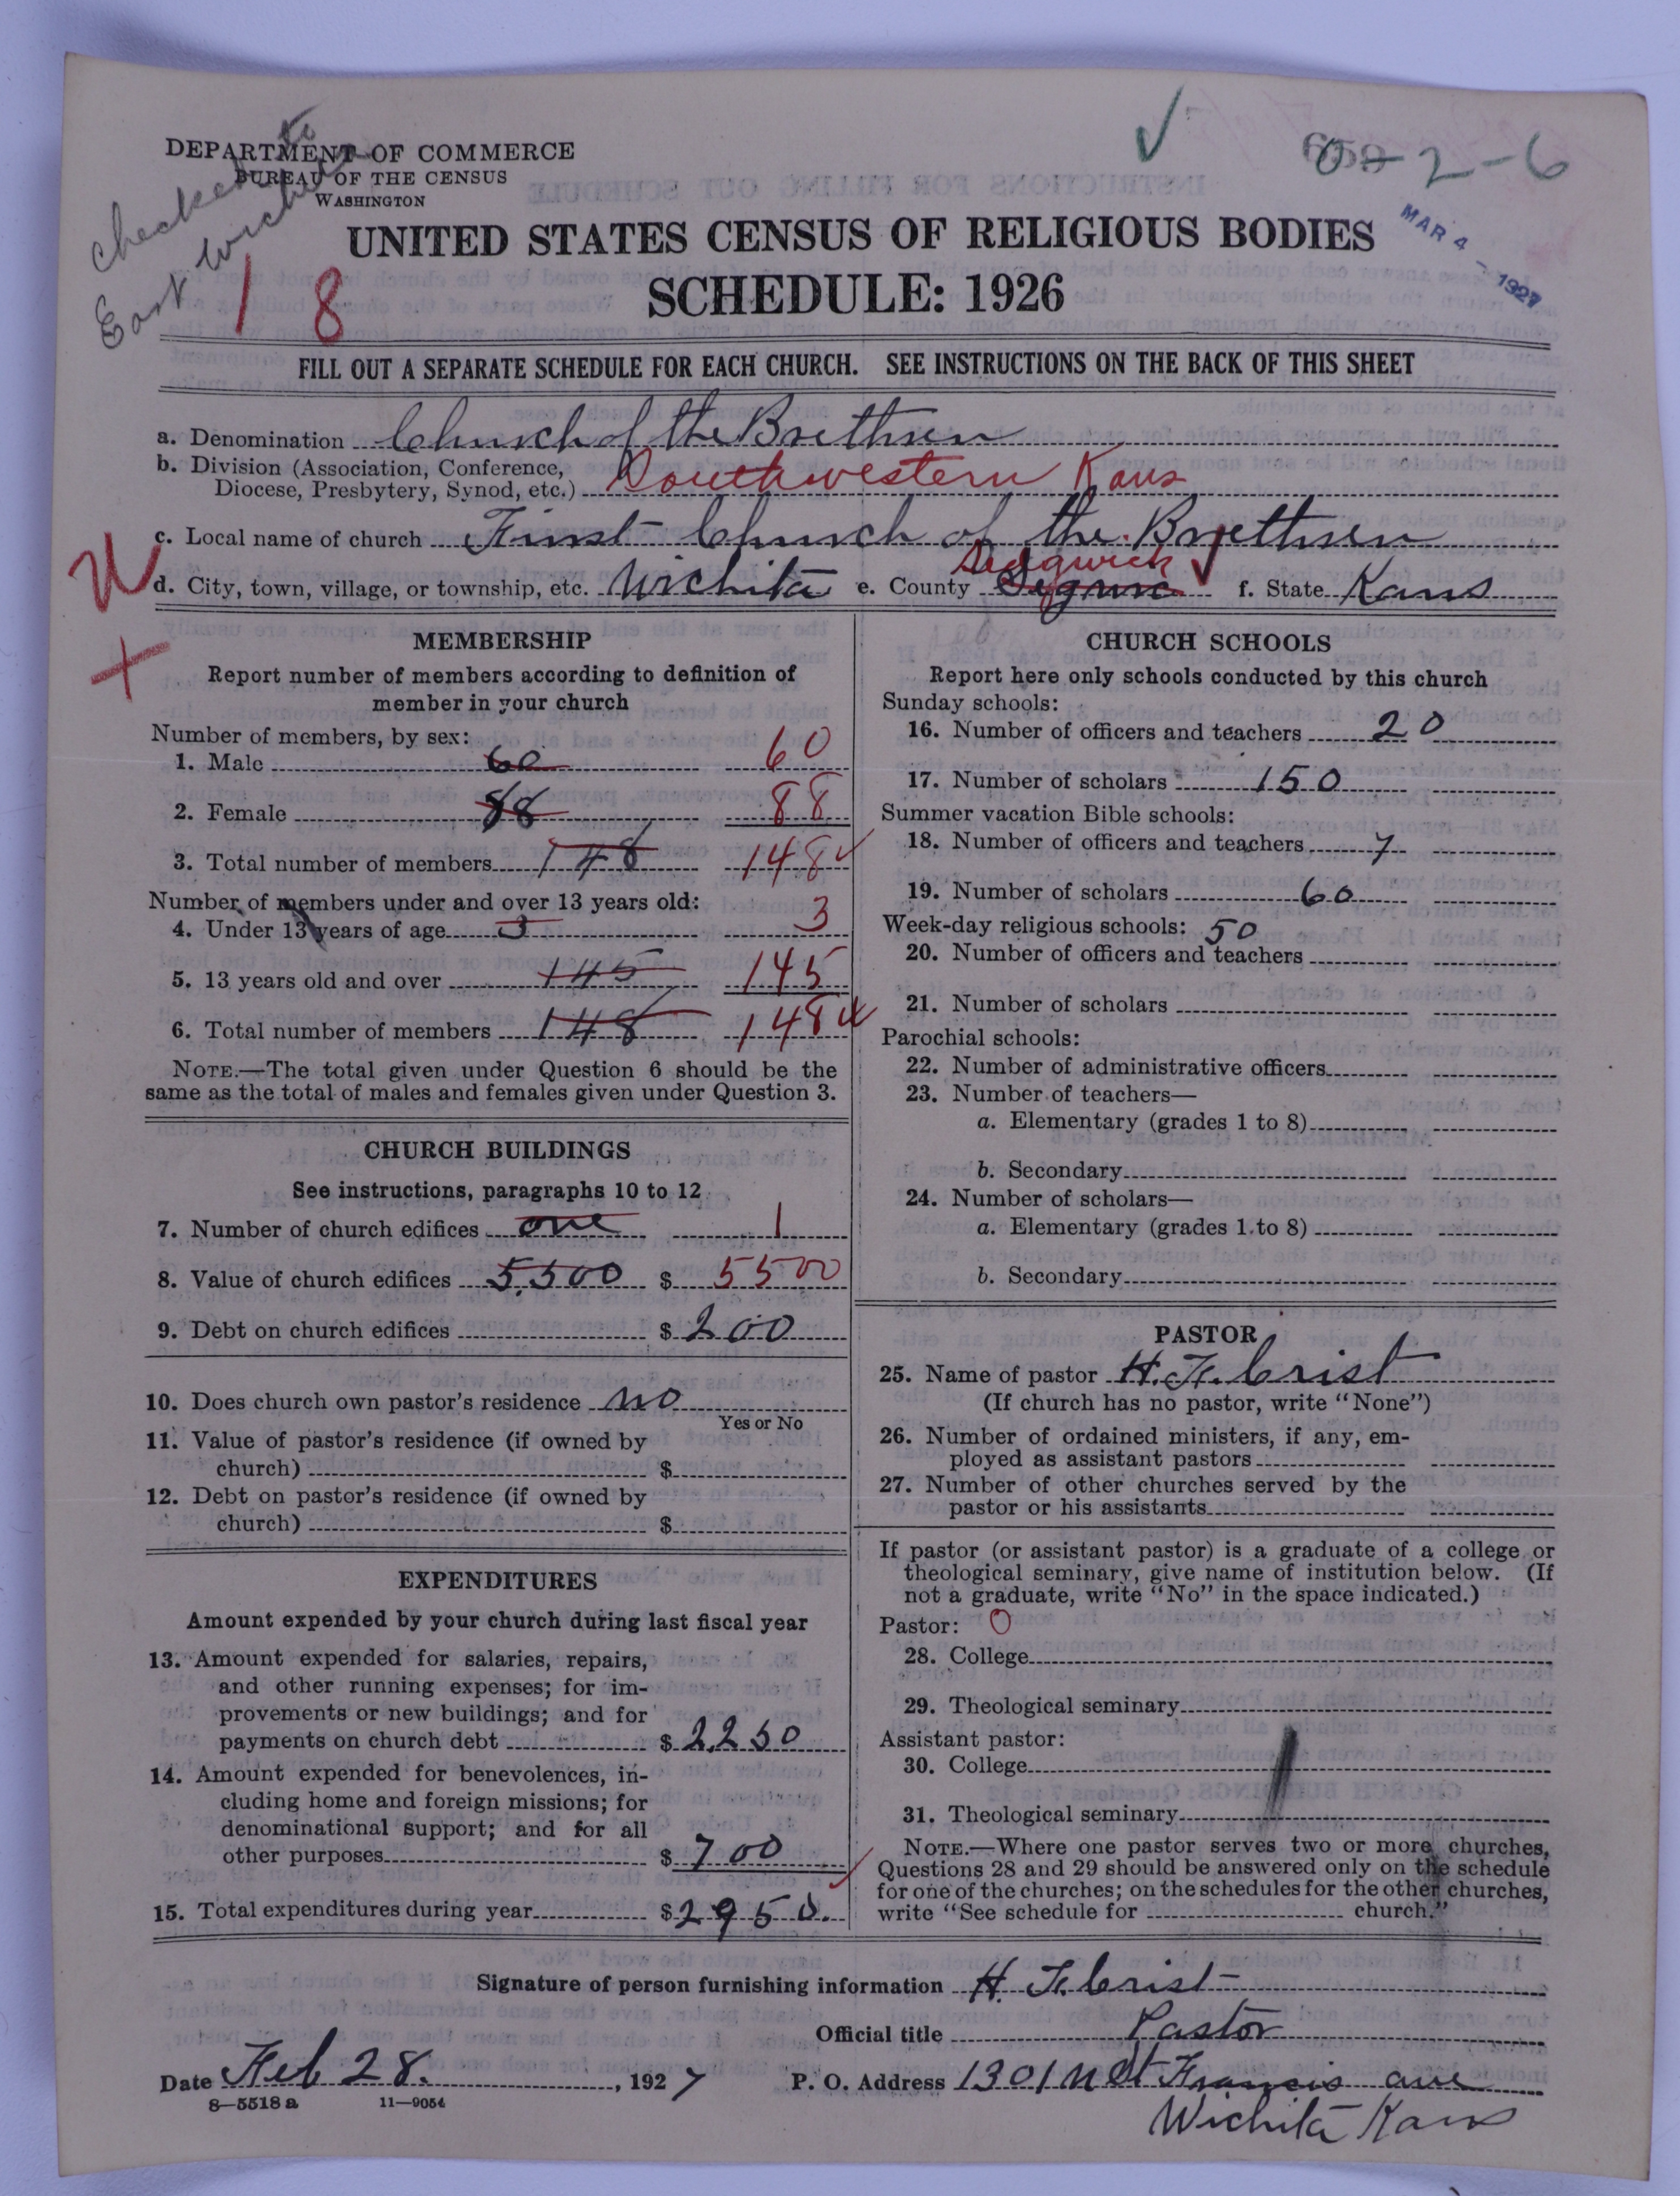 checked to
East Wichita
DEPARTMENT OF COMMERCE
BUREAU OF THE CENSUS
WASHINGTON
0-2-6
MAR 4 - 1927
UNITED STATES CENSUS OF RELIGIOUS BODIES
1 8
SCHEDULE: 1926
FILL OUT A SEPARATE SCHEDULE FOR EACH CHURCH. SEE INSTRUCTIONS ON THE BACK OF THIS SHEET
a. Denomination Church of the Brethren
b. Division (Association, Conference,
Diocese, Presbytery, Synod, etc.) Southwestern Kans
c. Local name of church First Church of the Brethren
Sedgwick
d. City, town, village, or township, etc. Wichita e. County f. State Kans
MEMBERSHIP
Report number of members according to definition of
member in your church
Number of members, by sex:
1. Male 60 60
2. Female 88 88
3. Total number of members 148 148
Number of members under and over 13 years old:
4. Under 13 years of age 3 3
5. 13 years old and over 145 145
6. Total number of members 148 148
NOTE.—The total given under Question 6 should be the
same as the total of males and females given under Question 3.
CHURCH BUILDINGS
See instructions, paragraphs 10 to 12
7. Number of church edifices one 1
8. Value of church edifices 5,500 $ 5500
9. Debt on church edifices $ 200
10. Does church own pastor's residence no
Yes or No
11. Value of pastor's residence (if owned by
church) $
12. Debt on pastor's residence (if owned by
church) $
EXPENDITURES
Amount expended by your church during last fiscal year
13. Amount expended for salaries, repairs,
and other running expenses; for im-
provements or new buildings; and for
payments on church debt $ 2,250
14. Amount expended for benevolences, in-
cluding home and foreign missions; for
denominational support; and for all
other purposes $ 700
15. Total expenditures during year $ 2950.
CHURCH SCHOOLS
Report here only schools conducted by this church
Sunday schools:
16. Number of officers and teachers 20
17. Number of scholars 150
Summer vacation Bible schools:
18. Number of officers and teachers 7
19. Number of scholars 60
Week-day religious schools: 50
20. Number of officers and teachers
21. Number of scholars
Parochial schools:
22. Number of administrative officers
23. Number of teachers—
a. Elementary (grades 1 to 8)
b. Secondary
24. Number of scholars—
a. Elementary (grades 1 to 8)
b. Secondary
PASTOR
25. Name of pastor H. F. Crist
(If church has no pastor, write "None")
26. Number of ordained ministers, if any, em-
ployed as assistant pastors
27. Number of other churches served by the
pastor or his assistants
If pastor (or assistant pastor) is a graduate of a college or
theological seminary, give name of institution below. (If
not a graduate, write "No" in the space indicated.)
Pastor: 0
28. College
29. Theological seminary
Assistant pastor:
30. College
31. Theological seminary
NOTE.—Where one pastor serves two or more churches,
Questions 28 and 29 should be answered only on the schedule
for one of the churches; on the schedules for the other churches,
write "See schedule for church."
Signature of person furnishing information H. F. Crist
Official title Pastor
Date Feb 28. , 1927 P. O. Address 1301 N St Francis ave
8—5518 a 11—9054
Wichita Kans